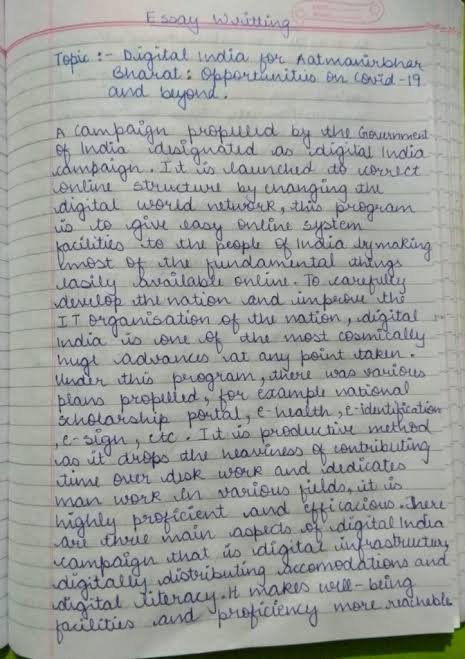 Essay Writting
Topic :- Digital India for Aatmanirbhar
Bharat : Opportunities on Covid-19
and beyond.
A campaign propelled by the Government
of India designated as digital India
campaign. It is launched to correct
online structure by changing the
digital world network, this program
is to give easy online system
facilities to the people of India by making
most of the fundamental things
easily available online. To carefully
develop the nation and improve the
I.T organisation of the nation, digital
India is one of the most cosmically
huge advances at any point taken.
Under this program, there was various
plans propelled, for example national
scholarship portal, e-health, e-identification
, e-sign, etc. It is productive method
as it drops the heaviness of contributing
time over desk work and dedicates
man work in various fields, it is
highly proficient and efficacious. There
are three main aspects of digital India
campaign that is digital infrastructure,
digitally distributing accomodations and
digital literacy. It makes well-being
facilities and proficiency more reachable